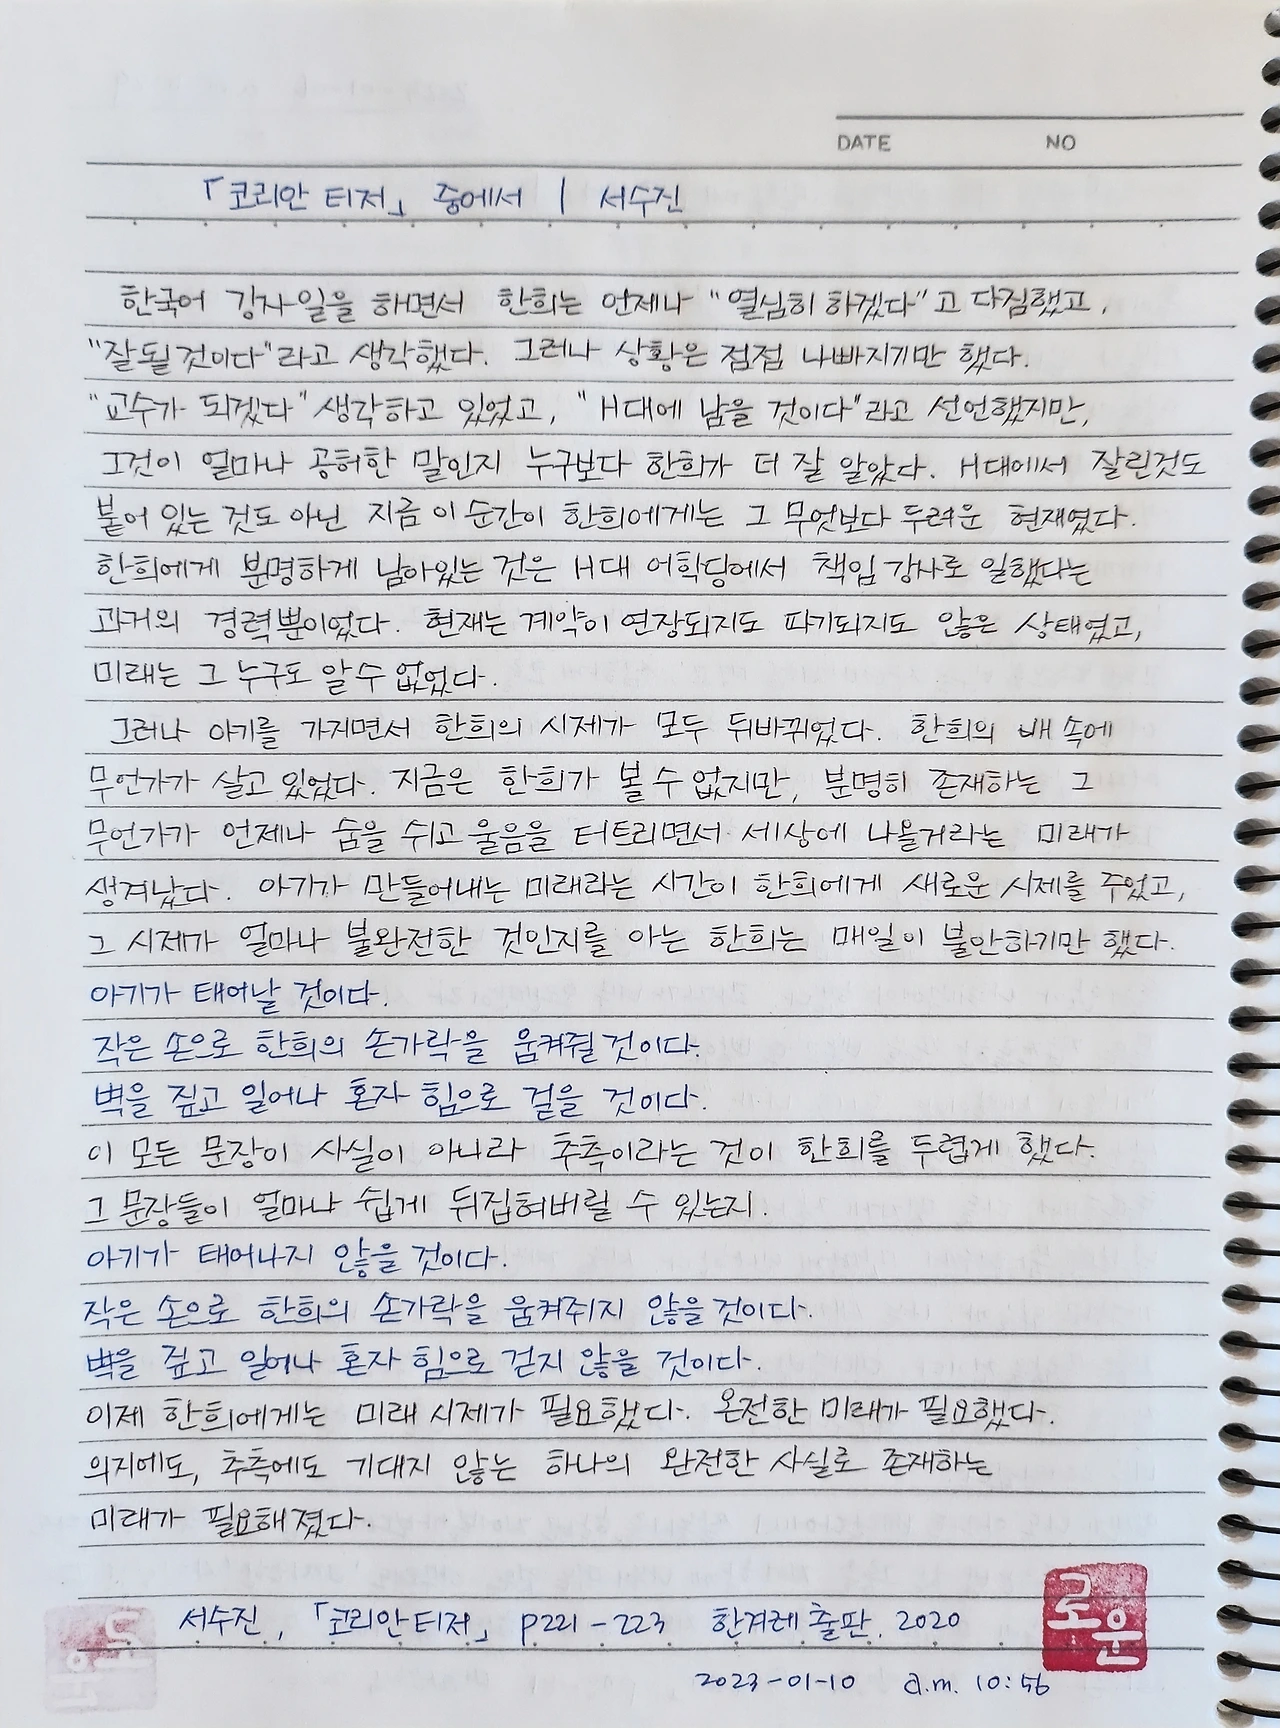 DATE NO
「코리안 티저」 중에서 | 서수진
한국어 강사일을 하면서 한희는 언제나 "열심히 하겠다"고 다짐했고,
"잘될 것이다"라고 생각했다. 그러나 상황은 점점 나빠지기만 했다.
"교수가 되겠다" 생각하고 있었고, "H대에 남을 것이다"라고 선언했지만,
그것이 얼마나 공허한 말인지 누구보다 한희가 더 잘 알았다. H대에서 잘린것도
붙어 있는 것도 아닌 지금 이 순간이 한희에게는 그 무엇보다 두려운 현재였다.
한희에게 분명하게 남아있는 것은 H대 어학당에서 책임 강사로 일했다는
과거의 경력뿐이었다. 현재는 계약이 연장되지도 파기되지도 않은 상태였고,
미래는 그 누구도 알 수 없었다.
그러나 아기를 가지면서 한희의 시제가 모두 뒤바뀌었다. 한희의 배 속에
무언가가 살고 있었다. 지금은 한희가 볼 수 없지만, 분명히 존재하는 그
무언가가 언제나 숨을 쉬고 울음을 터트리면서 세상에 나올거라는 미래가
생겨났다. 아기가 만들어내는 미래라는 시간이 한희에게 새로운 시제를 주었고,
그 시제가 얼마나 불완전한 것인지를 아는 한희는 매일이 불안하기만 했다.
아기가 태어날 것이다.
작은 손으로 한희의 손가락을 움켜쥘 것이다.
벽을 짚고 일어나 혼자 힘으로 걸을 것이다.
이 모든 문장이 사실이 아니라 추측이라는 것이 한희를 두렵게 했다.
그 문장들이 얼마나 쉽게 뒤집혀버릴 수 있는지.
아기가 태어나지 않을 것이다.
작은 손으로 한희의 손가락을 움켜쥐지 않을 것이다.
벽을 짚고 일어나 혼자 힘으로 걷지 않을 것이다.
이제 한희에게는 미래 시제가 필요했다. 온전한 미래가 필요했다.
의지에도, 추측에도 기대지 않는 하나의 완전한 사실로 존재하는
미래가 필요해졌다.
서수진, 「코리안티저」 p221-223 한겨레출판, 2020
로운
2023-01-10 a.m. 10:56